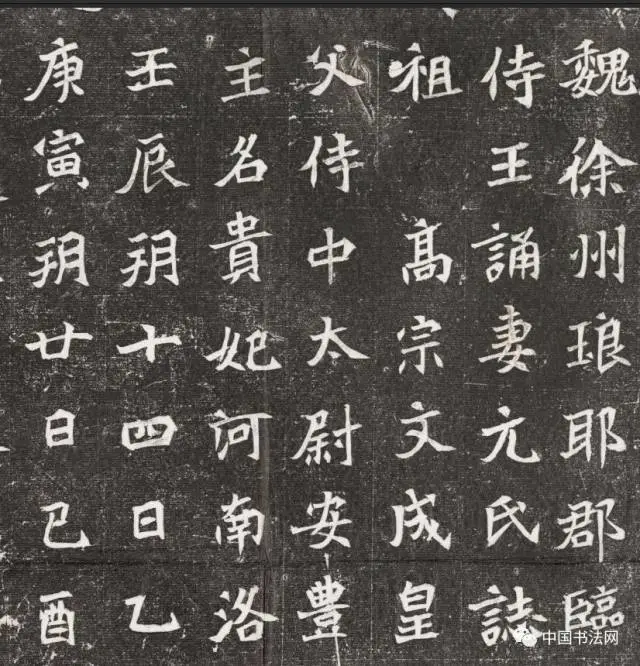 魏徐州琅耶郡臨
侍王誦妻元氏誌
祖 髙宗文成皇
父侍中太尉安豊
主名貴妃河南洛
壬辰朔十四日乙
庚寅朔廿日己酉
中国书法网